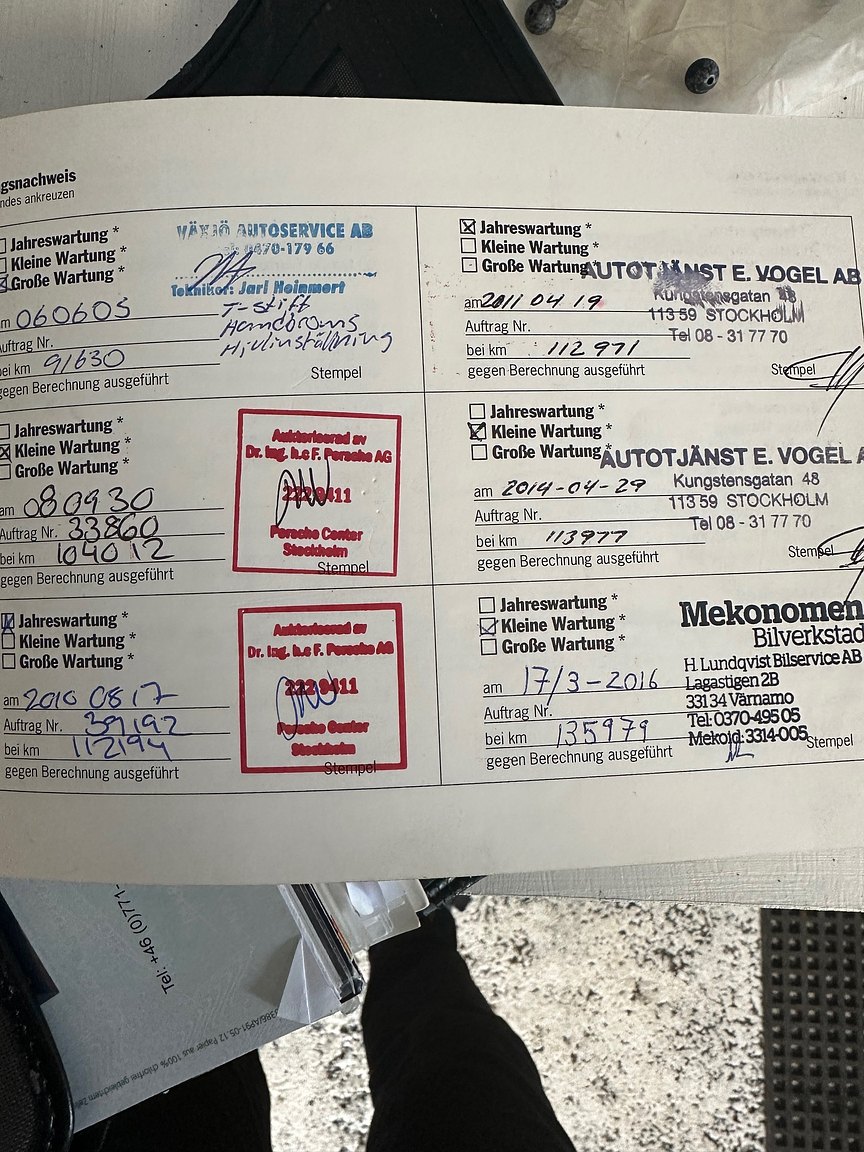 gsnachweis
ndes ankreuzen
Jahreswartung *
Kleine Wartung *
Große Wartung *
VÄXJÖ AUTOSERVICE AB
0470-179 66
Tekniker: Jarl Heinmert
m 060605
T-stift
Hemdbroms
Hjulinställning
Auftrag Nr.
bei km 91630
gegen Berechnung ausgeführt
Stempel
Jahreswartung *
Kleine Wartung *
Große Wartung *
Auktoriserad av
Dr. Ing. h.c F. Porsche AG
2229411
Porsche Center
Stockholm
am 080930
Auftrag Nr. 33860
bei km 104012
gegen Berechnung ausgeführt
Stempel
Jahreswartung *
Kleine Wartung *
Große Wartung *
Auktoriserad av
Dr. Ing. h.c F. Porsche AG
2229411
Porsche Center
Stockholm
am 2010 08 17
Auftrag Nr. 39192
bei km 112194
gegen Berechnung ausgeführt
Stempel
Jahreswartung *
Kleine Wartung *
Große Wartung
AUTOTJÄNST E. VOGEL AB
Kungstensgatan
113 59 STOCKHOLM
Tel 08 - 31 77 70
am 2011 04 19
Auftrag Nr.
bei km 112 971
gegen Berechnung ausgeführt
Stempel
Jahreswartung *
Kleine Wartung *
Große Wartung *
AUTOTJÄNST E. VOGEL A
Kungstensgatan 48
113 59 STOCKHOLM
Tel 08 - 31 77 70
am 2014-04-29
Auftrag Nr.
bei km 113977
gegen Berechnung ausgeführt
Stempel
Jahreswartung *
Kleine Wartung *
Große Wartung *
Mekonomen
Bilverkstad
H. Lundqvist Bilservice AB
Lagastigen 2B
331 34 Värnamo
Tel: 0370-495 05
Mekoid: 3314-005
am 17/3-2016
Auftrag Nr.
bei km 135979
gegen Berechnung ausgeführt
Stempel
Tel: +46 (0)771-
386/AP91-05.12 Papier aus 100% chlorfrei gebleichtem Zel